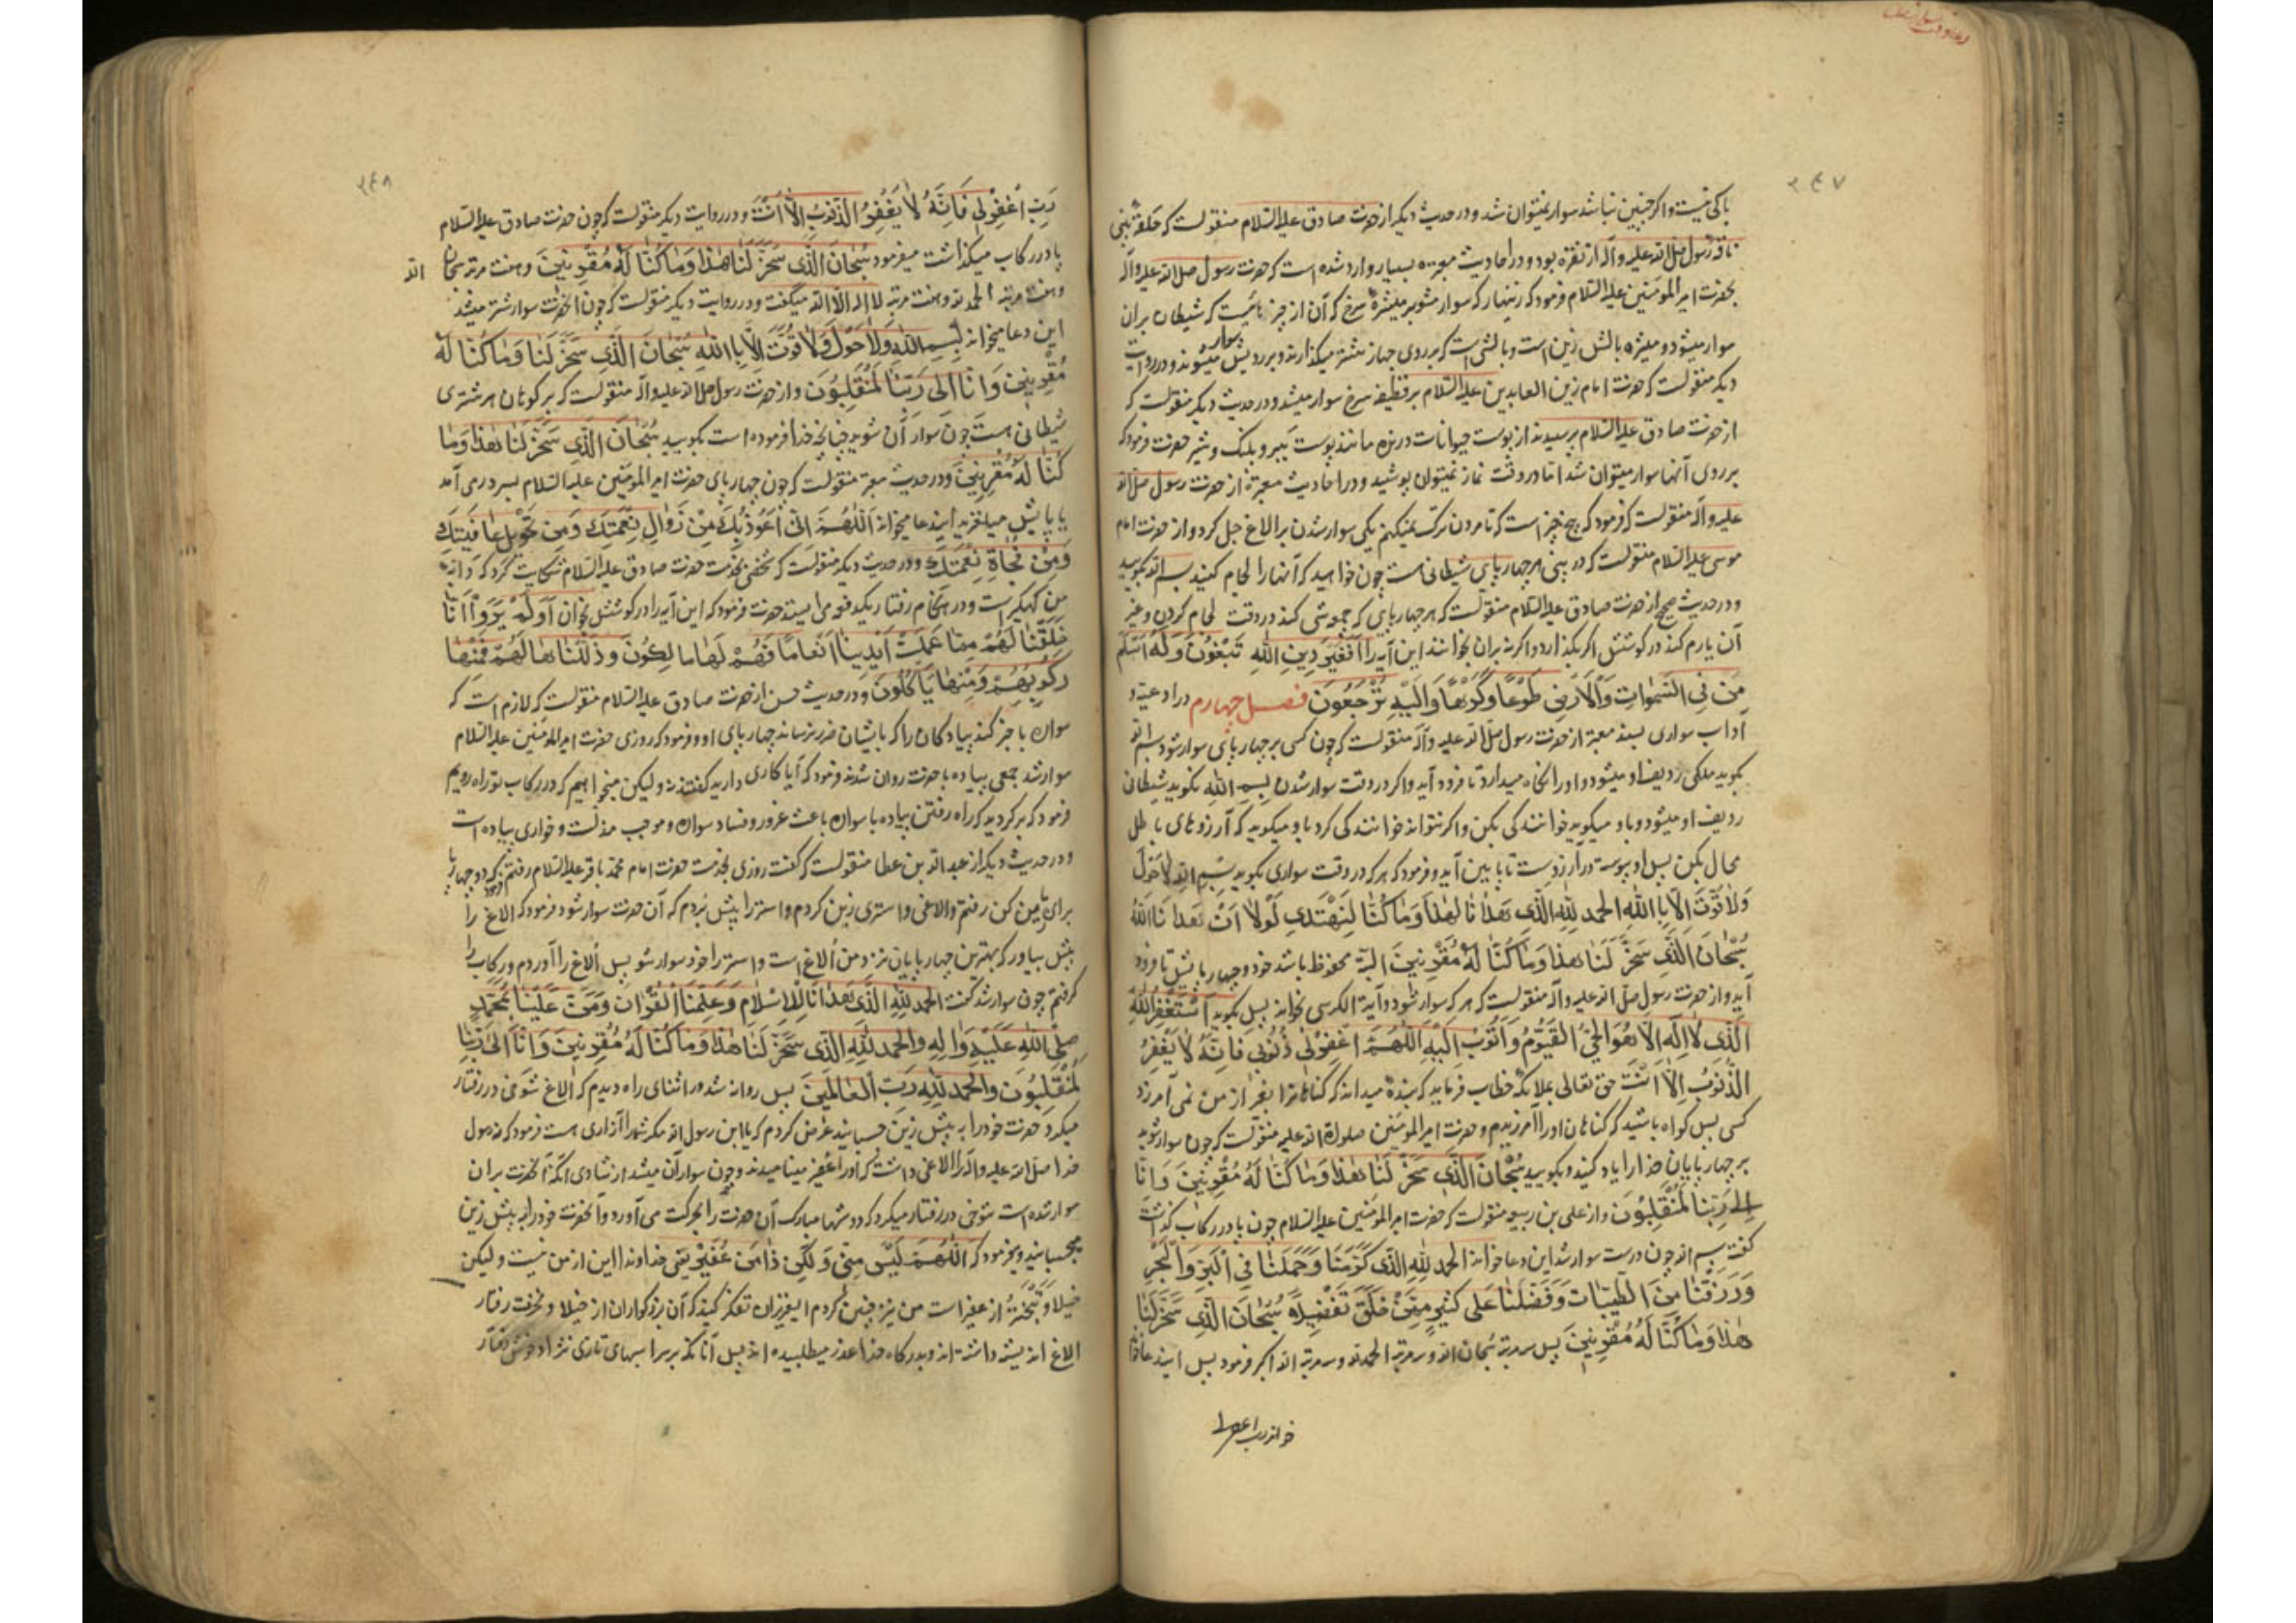 ۲۴۷
باکی نیست و اگر چنین نباشد سوار نمیتوان شد و در حدیث دیگر از حضرت صادق علیه السّلام منقولست که حلقهٔ بینی
ناقه رسول صلی الله علیه وآله از نقره بود و در احادیث معتبره بسیار وارد شده است که حضرت رسول صلی الله علیه وآله
بحضرت امیر المؤمنین علیه السّلام فرمود که زنهار که سوار مشو بر میثرهٔ سرخ که آن از چیزهائیست که شیطان بران
سوار میشود و میثره بالش زین است و بالشی است که بر روی جهاز شتر میگذارند و بر رویش سوار میشوند و در روایت
دیگر منقولست که حضرت امام زین العابدین علیه السّلام بر قطیفه سرخ سوار میشد و در حدیث دیگر منقولست که
از حضرت صادق علیه السّلام پرسیدند از پوست حیوانات درنده مانند پوست ببر و پلنگ و شیر حضرت فرمود که
بر روی آنها سوار میتوان شد امّا در وقت نماز نمیتوان پوشید و در احادیث معتبره از حضرت رسول صلی الله
علیه وآله منقولست که فرمود که پنج چیز است که تا مردن ترک نمیکنم یکی سوار شدن بر الاغ جل کرده و از حضرت امام
موسی علیه السّلام منقولست که در بینی هر چهارپای شیطانی هست چون خواهید که آنها را لجام کنید بسم الله بگویید
و در حدیث صحیح از حضرت صادق علیه السّلام منقولست که هر چهارپای که چموشی کند در وقت لجام کردن و غیر
آن یا رم کند در گوشش اگر بگذارد و اگر نه بران بخوانند این آیه را اَفَغَیْرَ دِینِ اللهِ تَبْغُونَ وَلَهُ اَسْلَمَ
مَن فِی السَّمٰوٰاتِ وَالْاَرْضِ طَوْعًا وَکَرْهًا وَاِلَیْهِ تُرْجَعُونَ فصل چهارم در ادعیه و
آداب سواری بسند معتبر از حضرت رسول صلی الله علیه وآله منقولست که چون کسی بر چهارپای سوار شود بسم الله
بگوید ملکی ردیف او میشود و او را نگاه میدارد تا فرود آید و اگر در وقت سوار شدن بِسمِ اللهِ نگوید شیطانی
ردیف او میشود و باو میگوید خوانندگی بکن و اگر نتواند خوانندگی کرد باو میگوید که آرزوهای باطل
محال بکن پس او پیوسته در آرزوست تا پایین آید و فرمود که هر که در وقت سواری بگوید بِسمِ اللهِ لاٰ حَوْلَ
وَلاٰ قُوَّةَ اِلّاٰ بِاللهِ الحَمدُ لِلّٰهِ الَّذِی هَدٰانٰا لِهٰذٰا وَمٰا کُنّٰا لِنَهْتَدِیَ لَوْلاٰ اَنْ هَدٰانَا اللهُ
سُبْحٰانَ الَّذِی سَخَّرَ لَنٰا هٰذٰا وَمٰا کُنّٰا لَهُ مُقْرِنِینَ البتّه محفوظ باشد خود و چهارپایش تا فرود
آید و از حضرت رسول صلی الله علیه وآله منقولست که هر که سوار شود و آیة الکرسی بخواند پس بگوید اَسْتَغْفِرُ اللهَ
الَّذِی لاٰ اِلٰهَ اِلّاٰ هُوَ الحَیُّ القَیُّومُ وَاَتُوبُ اِلَیْهِ اَللّٰهُمَّ اغْفِرْلِی ذُنُوبِی فَاِنَّهُ لاٰ یَغْفِرُ
الذُّنُوبَ اِلّاٰ اَنْتَ حق تعالی بملائکه خطاب فرماید که بندهٔ میداند که گناهانرا بغیر از من نمی آمرزد
کسی پس گواه باشید که گناهان او را آمرزیدم و حضرت امیر المؤمنین صلواة الله علیه منقولست که چون سوار شوید
بر چهارپایان خدا را یاد کنید و بگویید سُبْحٰانَ الَّذِی سَخَّرَ لَنٰا هٰذٰا وَمٰا کُنّٰا لَهُ مُقْرِنِینَ وَاِنّٰا
اِلیٰ رَبِّنٰا لَمُنْقَلِبُونَ و از علی بن ربیعه منقولست که حضرت امیر المؤمنین علیه السّلام چون پا در رکاب گذاشت
گفت بسم الله چون درست سوار شد این دعا خواند الحمدُ لِلّٰهِ الَّذِی کَرَّمَنٰا وَحَمَلَنٰا فِی البَرِّ وَالْبَحْرِ
وَرَزَقَنٰا مِنَ الطَّیِّبٰاتِ وَفَضَّلَنٰا عَلی کَثِیرٍ مِمَّنْ خَلَقَ تَفْضِیلًا سُبْحٰانَ الَّذِی سَخَّرَ لَنٰا
هٰذٰا وَمٰا کُنّٰا لَهُ مُقْرِنِینَ پس سه مرتبه سُبحان الله و سه مرتبه الحمد لله و سه مرتبه الله اکبر فرمود پس این دعا خواند
خواند رب اغفرلی
۲۴۸
رَبِّ اغْفِرْلِی فَاِنَّهُ لاٰ یَغْفِرُ الذُّنُوبَ اِلّاٰ اَنْتَ و در روایت دیگر منقولست که چون حضرت صادق علیه السّلام
پا در رکاب میگذاشت میفرمود سُبْحٰانَ الَّذِی سَخَّرَ لَنٰا هٰذٰا وَمٰا کُنّٰا لَهُ مُقْرِنِینَ و هفت مرتبه سبحان الله
و هفت مرتبه الحمد لله و هفت مرتبه لا اله الا الله میگفت و در روایت دیگر منقولست که چون آنحضرت سوار شتر میشد
این دعا میخواند بِسمِ اللهِ وَلاٰ حَوْلَ وَلاٰ قُوَّتَ اِلّاٰ بِاللهِ سُبْحٰانَ الَّذِی سَخَّرَ لَنٰا هٰذٰا وَمٰا کُنّٰا لَهُ
مُقْرِنِینَ وَاِنّٰا اِلیٰ رَبِّنٰا لَمُنْقَلِبُونَ و از حضرت رسول صلی الله علیه وآله منقولست که بر کوهان هر شتری
شیطانی هست چون سوار آن شوید چنانچه خدا فرموده است بگویید سُبْحٰانَ الَّذِی سَخَّرَ لَنٰا هٰذٰا وَمٰا
کُنّٰا لَهُ مُقْرِنِینَ و در حدیث معتبر منقولست که چون چهارپای حضرت امیر المؤمنین علیه السّلام بسر دری آمد
یا پایش میلغزید ایندعا میخواند اَللّٰهُمَّ اِنّی اَعُوذُ بِکَ مِنْ زَوٰالِ نِعْمَتِکَ وَمِنْ تَحْوِیلِ عٰافِیَتِکَ
وَمِنْ فُجٰاةِ نِقْمَتِکَ و در حدیث دیگر منقولست که شخصی بخدمت حضرت صادق علیه السّلام شکایت کرد که دابّه
من گیراست و در هنگام رفتار یکدفعه می ایستد حضرت فرمود که این آیه را در گوشش بخوان اَوَلَمْ یَرَوْا اَنّٰا
خَلَقْنٰا لَهُمْ مِمّٰا عَمِلَتْ اَیْدِینٰا اَنْعٰامًا فَهُمْ لَهٰا مٰالِکُونَ وَذَلَّلْنٰاهٰا لَهُمْ فَمِنْهٰا
رَکُوبُهُمْ وَمِنْهٰا یَاْکُلُونَ و در حدیث حسن از حضرت صادق علیه السّلام منقولست که لازم است که
سواره با خبر کند پیادگان را که بایشان ضرر نرساند چهارپای او و فرمود که روزی حضرت امیر المؤمنین علیه السّلام
سوار شد جمعی پیاده با حضرت روان شدند فرمود که آیا کاری دارید گفتند نه ولیکن میخواهیم که در رکاب تو راه رویم
فرمود که برگردید که راه رفتن پیاده با سواره باعث غرور و فساد سواره و موجب مذلت و خواری پیاده است
و در حدیث دیگر از عبد الله بن عطا منقولست که گفت روزی بخدمت حضرت امام محمّد باقر علیه السّلام رفتم فرمود که دو چهارپا
برای ما زین کن رفتم و الاغی و استری زین کردم و استر را پیش بردم که آن حضرت سوار شود فرمود که الاغ را
پیش بیاور که بهترین چهارپایان نزد من اُلاغ است و استر را خود سوار شو پس اُلاغ را آوردم و رکاب را
گرفتم چون سوار شد گفت الحَمدُ لِلّٰهِ الَّذِی هَدٰانٰا لِلْاِسْلٰامِ وَعَلَّمَنَا الْقُرْاٰنَ وَمَنَّ عَلَیْنٰا بِمُحَمَّدٍ
صلّی اللهُ عَلَیْهِ وَاٰلِهِ وَالحَمدُ لِلّٰهِ الَّذِی سَخَّرَ لَنٰا هٰذٰا وَمٰا کُنّٰا لَهُ مُقْرِنِینَ وَاِنّٰا اِلیٰ رَبِّنٰا
لَمُنْقَلِبُونَ وَالحَمدُ لِلّٰهِ رَبِّ العٰالَمِینَ پس روانه شد و در اثنای راه دیدم که اُلاغ شوخی در رفتار
میکرد حضرت خود را به پیش زین چسبانید عرض کردم که یا ابن رسول الله مگر شما را آزاری هست فرمود که رسول
خدا صلی الله علیه وآله را الاغی داشت که او را عُفیر مینامیدند و چون سوار آن میشد از شادی آنکه آنحضرت بران
سوار شده است شوخی در رفتار میکرد که دوشهای مبارک آن حضرت را بحرکت می آورد و آنحضرت خود را به پیش زین
میچسبانید و میفرمود که اَللّٰهُمَّ لَیْسَ مِنّی وَلٰکِنْ ذٰا مِنْ عُفَیْرٍ یعنی خداوندا این از من نیست ولیکن
خیلا و تَبَختُر از عفیر است من نیز چنین کردم ای عزیزان تفکر کنید که آن بزرگواران از خیلا و نخوت رفتار
الاغ اندیشه داشته اند و بدرگاه خدا عذر میطلبیده اند پس آنانکه بر اسبهای تازی نژاد خوش رفتار